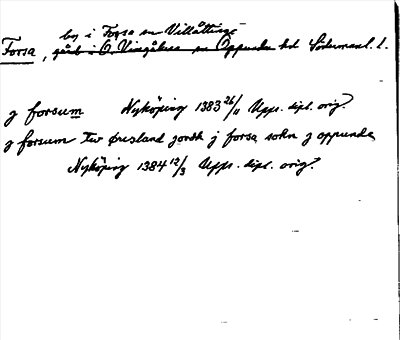 by i Forsa sn Villåttinge
Forsa, gård i O. Vingåkers sn Oppunda hd Södermanl. l.
J forsum Nyköping 1383 26/11 Upps. dipl. orig.
J forsum tw öresland jordh j forsa sokn j oppunda
Nyköping 1384 12/3 Upps. dipl. orig.